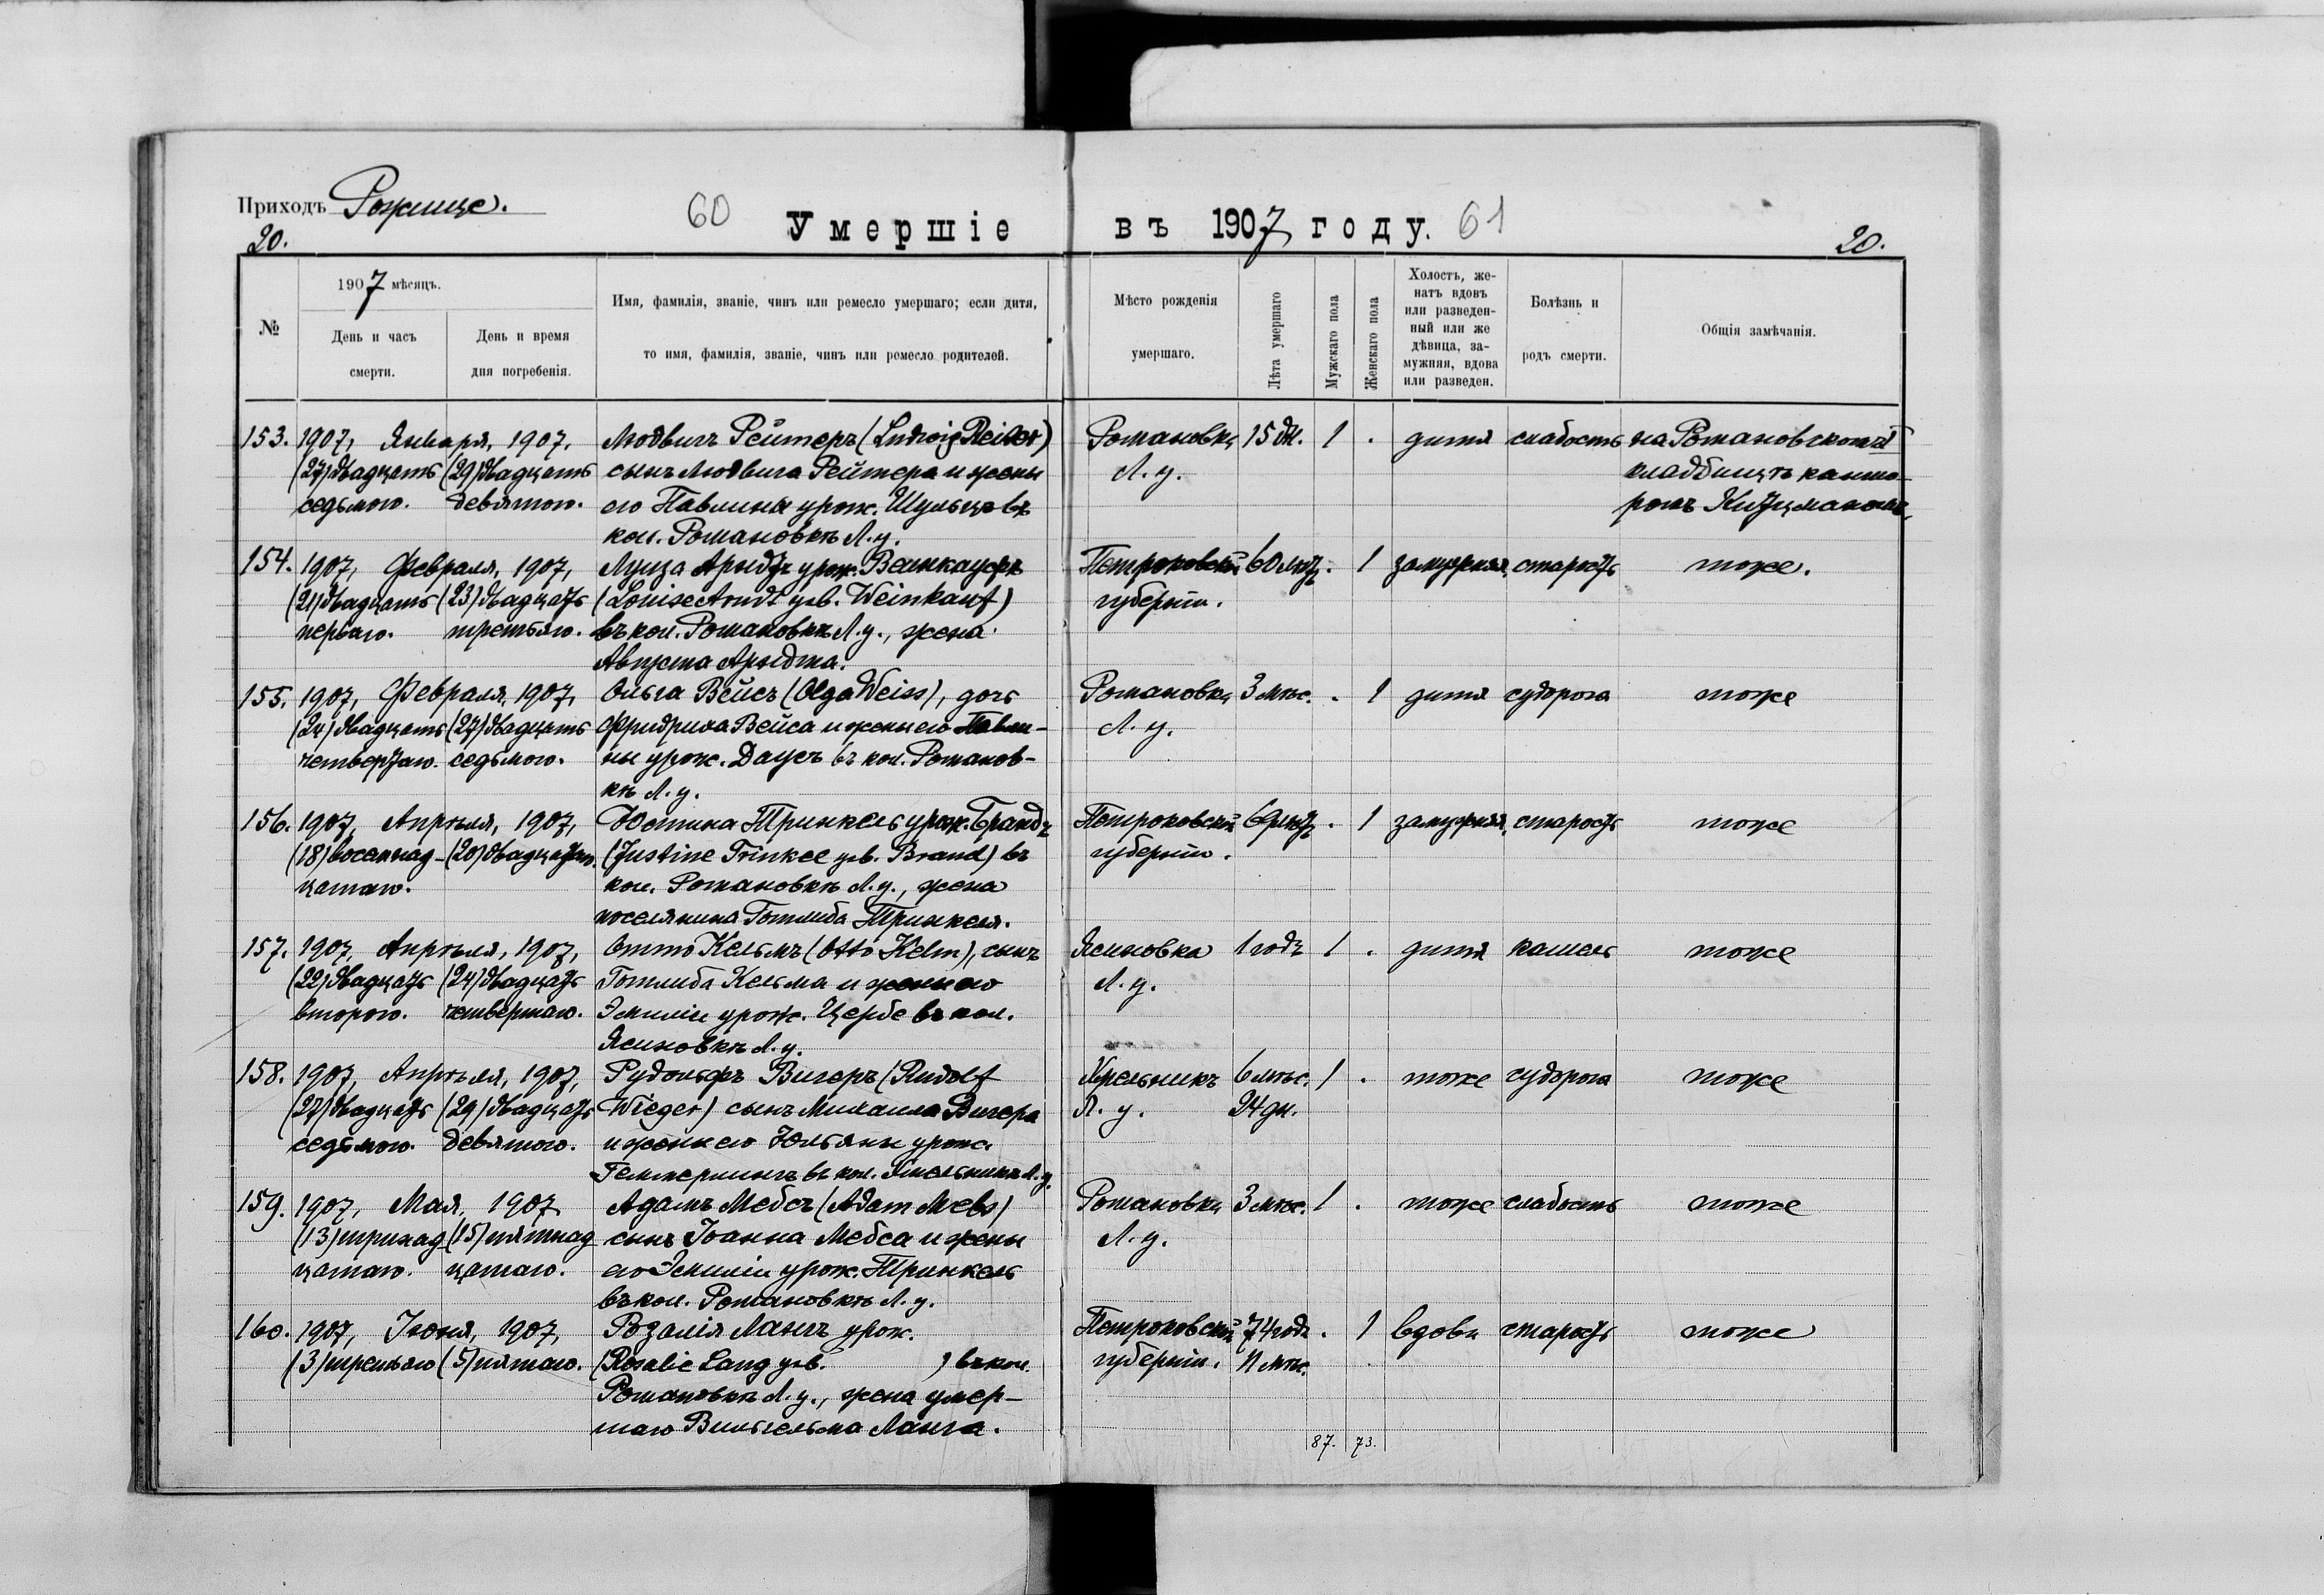 Приходъ Рожище.
60 Умершіе въ 1907 году. 61
20. 20.
№
1907 мѣсяцъ.
День и часъ смерти.
День и время дня погребенія.
Имя, фамилія, званіе, чинъ или ремесло умершаго; если дитя,
то имя, фамилія, званіе, чинъ или ремесло родителей.
Мѣсто рожденія
умершаго.
Лѣта умершаго
Мужскаго пола
Женскаго пола
Холостъ, же-
натъ вдовъ
или разведен-
ный или же
дѣвица, за-
мужняя, вдова
или разведен.
Болѣзнь и
родъ смерти.
Общія замѣчанія.
153. 1907, Января, 1907, Людвигъ Рейтеръ (Ludwig Reiter) Романовка 15 дн. 1 . дитя слабость на Романовскомъ
(27) двадцать (29) двадцать сынъ Людвига Рейтера и жены Л. у. кладбищѣ канто-
седьмого. девятого. его Павлина урож. Шульцъ въ ромъ
кол. Романовкѣ Л. у.
154. 1907, Февраля, 1907, Луиза Арндтъ урож. Вейнкауфъ Петроковской 60 лѣтъ . 1 замужняя старость тоже.
(21) двадцать (23) двадцать (Louise Arndt geb. Weinkauf) губерніи.
перваго. третьяго. въ кол. Романовкѣ Л. у., жена
Августа Арндта.
155. 1907, Февраля, 1907, Ольга Вейсъ (Olga Weiss), дочь Романовка 3 мѣс. . 1 дитя судорога тоже
(24) двадцать (27) двадцать Фридриха Вейса и жены его Павли- Л. у.
четвертаго. седьмого. ны урож. Даусъ въ кол. Романов-
кѣ Л. у.
156. 1907, Апрѣля, 1907, Юстина Тринкель урож. Брандъ Петроковской лѣтъ . 1 замужняя старость тоже
(18) восемнад- (20) двадцатаго. (Justine Trinkel geb. Brand) въ губерніи.
цатаго. кол. Романовкѣ Л. у., жена
поселянина Готлиба Тринкеля.
157. 1907, Апрѣля, 1907, Отто Кельмъ (Otto Kelm), сынъ Ясиновка 1 годъ 1 . дитя кашель тоже
(22) двадцать (24) двадцать Готлиба Кельма и жены его Л. у.
второго. четвертаго. Эмиліи урож. Цербе въ кол.
Ясиновкѣ Л. у.
158. 1907, Апрѣля, 1907, Рудольфъ Вигеръ (Rudolf 6 мѣс. 1 . тоже судорога тоже
(27) двадцать (29) двадцать Wieger) сынъ Михаила Вигера Л. у. 24 дн.
седьмого. девятого. и жены его Юльяны урож.
въ кол. Л. у.
159. 1907, Мая, 1907 Адамъ Мебсъ (Adam Mebs) Романовка 3 мѣс. 1 . тоже слабость тоже
(13) тринад (15) пятнад сынъ Іоанна Мебса и жены Л. у.
цатаго. цатаго. его Эмиліи урож. Тринкель
въ кол. Романовкѣ Л. у.
160. 1907, Іюня, 1907, Розалія Лангъ урож. Петроковской 74 года . 1 вдова старость тоже
(3) третьяго (5) пятаго. (Rosalie Lang geb. ) въ кол губерніи. 11 мѣс.
Романовкѣ Л. у., жена умер-
шаго Вильгельма Ланга.
87. 73.